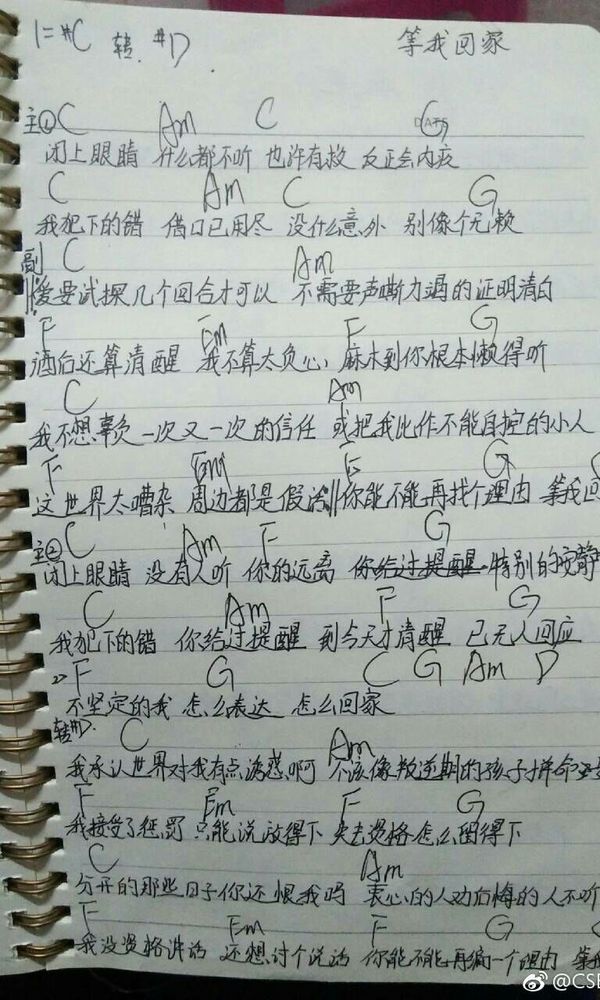 1=#C 转 #D 等我回家
主① C Am C G
闭上眼睛 什么都不听 也许有救 反正会内疚
C Am C G
我犯下的错 借口已用尽 没什么意外 别像个无赖
副 C Am
爱要试探几个回合才可以 不需要声嘶力竭的证明清白
F Em F G
酒后还算清醒 我不算太负心 麻木到你根本懒得听
C Am
我不想辜负一次又一次的信任 或把我比作不能自控的小人
F Em F G
这世界太嘈杂 周边都是假话 你能不能再找个理由 等我回
主② C Am F G
闭上眼睛 没有人听 你的远离 你给过提醒 特别的安静
C Am F G
我犯下的错 你给过提醒 到今天才清醒 已无人回应
F G C G Am D
不坚定的我 怎么表达 怎么回家
转#D C Am
我承认世界对我有点诱惑啊 不该像叛逆期的孩子拼命
F Em F G
我接受了惩罚 只能说放得下 失去资格怎么留得下
C Am
分开的那些日子你还恨我吗 衷心的人劝后悔的人不听
F Em F G
我没资格讲话 还想讨个说法 你能不能再编一个理由 等我
@CSB